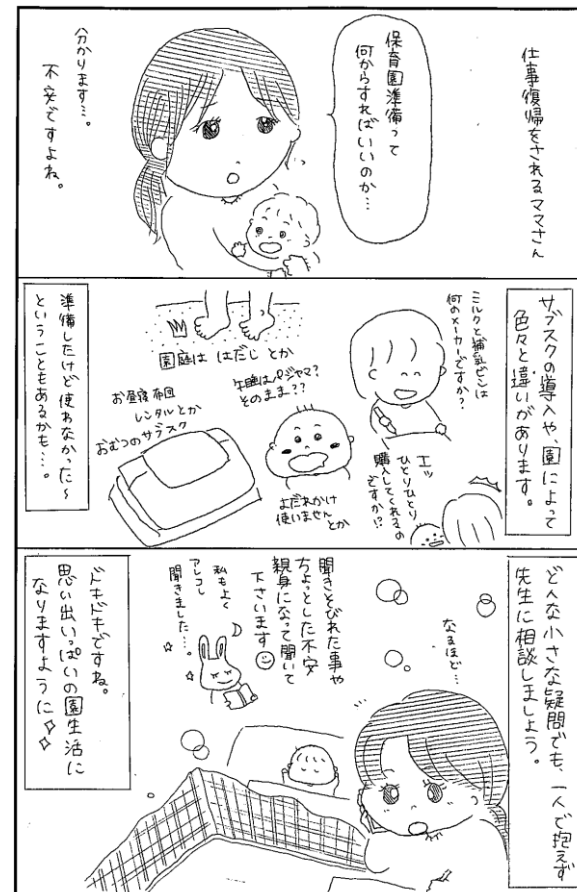 仕事復帰をされるママさん
保育園準備って
何からすればいいのか…
分かります…。
不安ですよね。
サブスクの導入や、園によって
色々と違いがあります。
ミルクと哺乳ビンは
何のメーカーですか？
エッ
ひとりひとり
購入してくれるの
ですか!?
園庭は はだしとか
午睡はパジャマ？
そのまま？？
よだれかけ
使いません
とか
お昼寝布団
レンタルとか
おむつのサブスク
準備したけど使わなかった〜
ということもあるかも…。
どんな小さな疑問でも、一人で抱えず
先生に相談しましょう。
なるほど…
聞きそびれた事や
ちょっとした不安
親身になって聞いて
下さいます
私もよく
アレコレ
聞きました…。
ドキドキですね。
思い出いっぱいの園生活に
なりますように